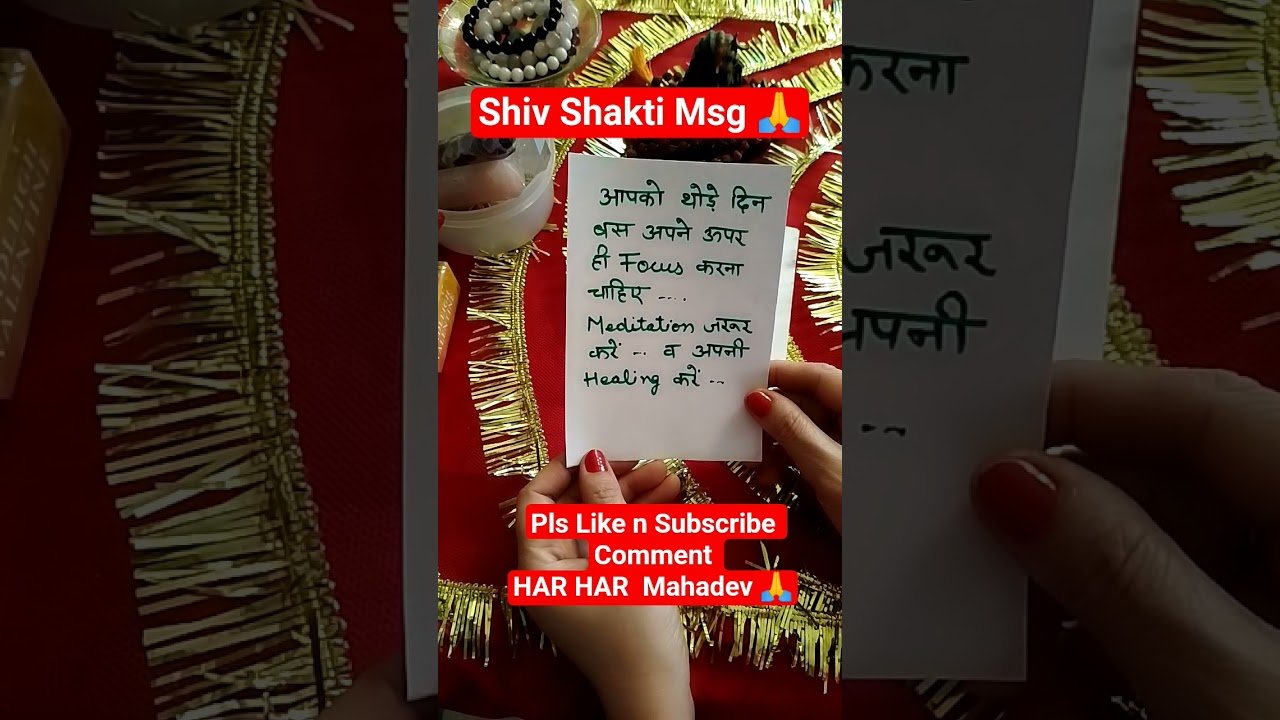 Shiv Shakti Msg 🙏
आपको थोड़े दिन
बस अपने ऊपर
ही Focus करना
चाहिए ....
Meditation जरूर
करें .. व अपनी
Healing करें ..
Pls Like n Subscribe
Comment
HAR HAR Mahadev 🙏
करना
जरूर
अपनी
VALENTINE